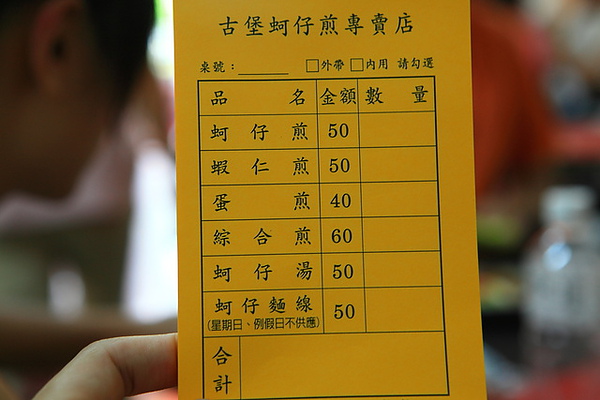 古堡蚵仔煎專賣店
桌號：______ □外帶 □內用 請勾選
品名 金額 數量
蚵仔煎 50
蝦仁煎 50
蛋煎 40
綜合煎 60
蚵仔湯 50
蚵仔麵線 50
(星期日、例假日不供應)
合計